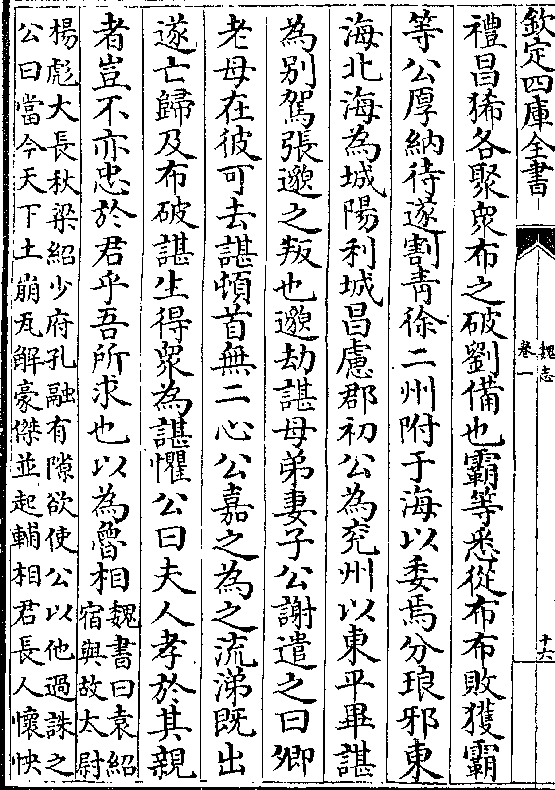 欽定四庫全書
魏志
卷一
十六
禮昌狶各聚衆布之破劉備也霸等悉從布布敗獲霸
等公厚納待遂割青徐二州附于海以委焉分琅邪東
海北海為城陽利城昌慮郡初公為兖州以東平畢諶
為别駕張邈之叛也邈劫諶母弟妻子公謝遣之曰卿
老母在彼可去諶頓首無二心公嘉之為之流涕既出
遂亡歸及布破諶生得衆為諶懼公曰夫人孝於其親
者豈不亦忠於君乎吾所求也以為魯相
魏書曰袁紹
宿與故太尉
楊彪大長秋梁紹少府孔融有隙欲使公以他過誅之
公曰當今天下土崩瓦解豪傑並起輔相君長人懷怏